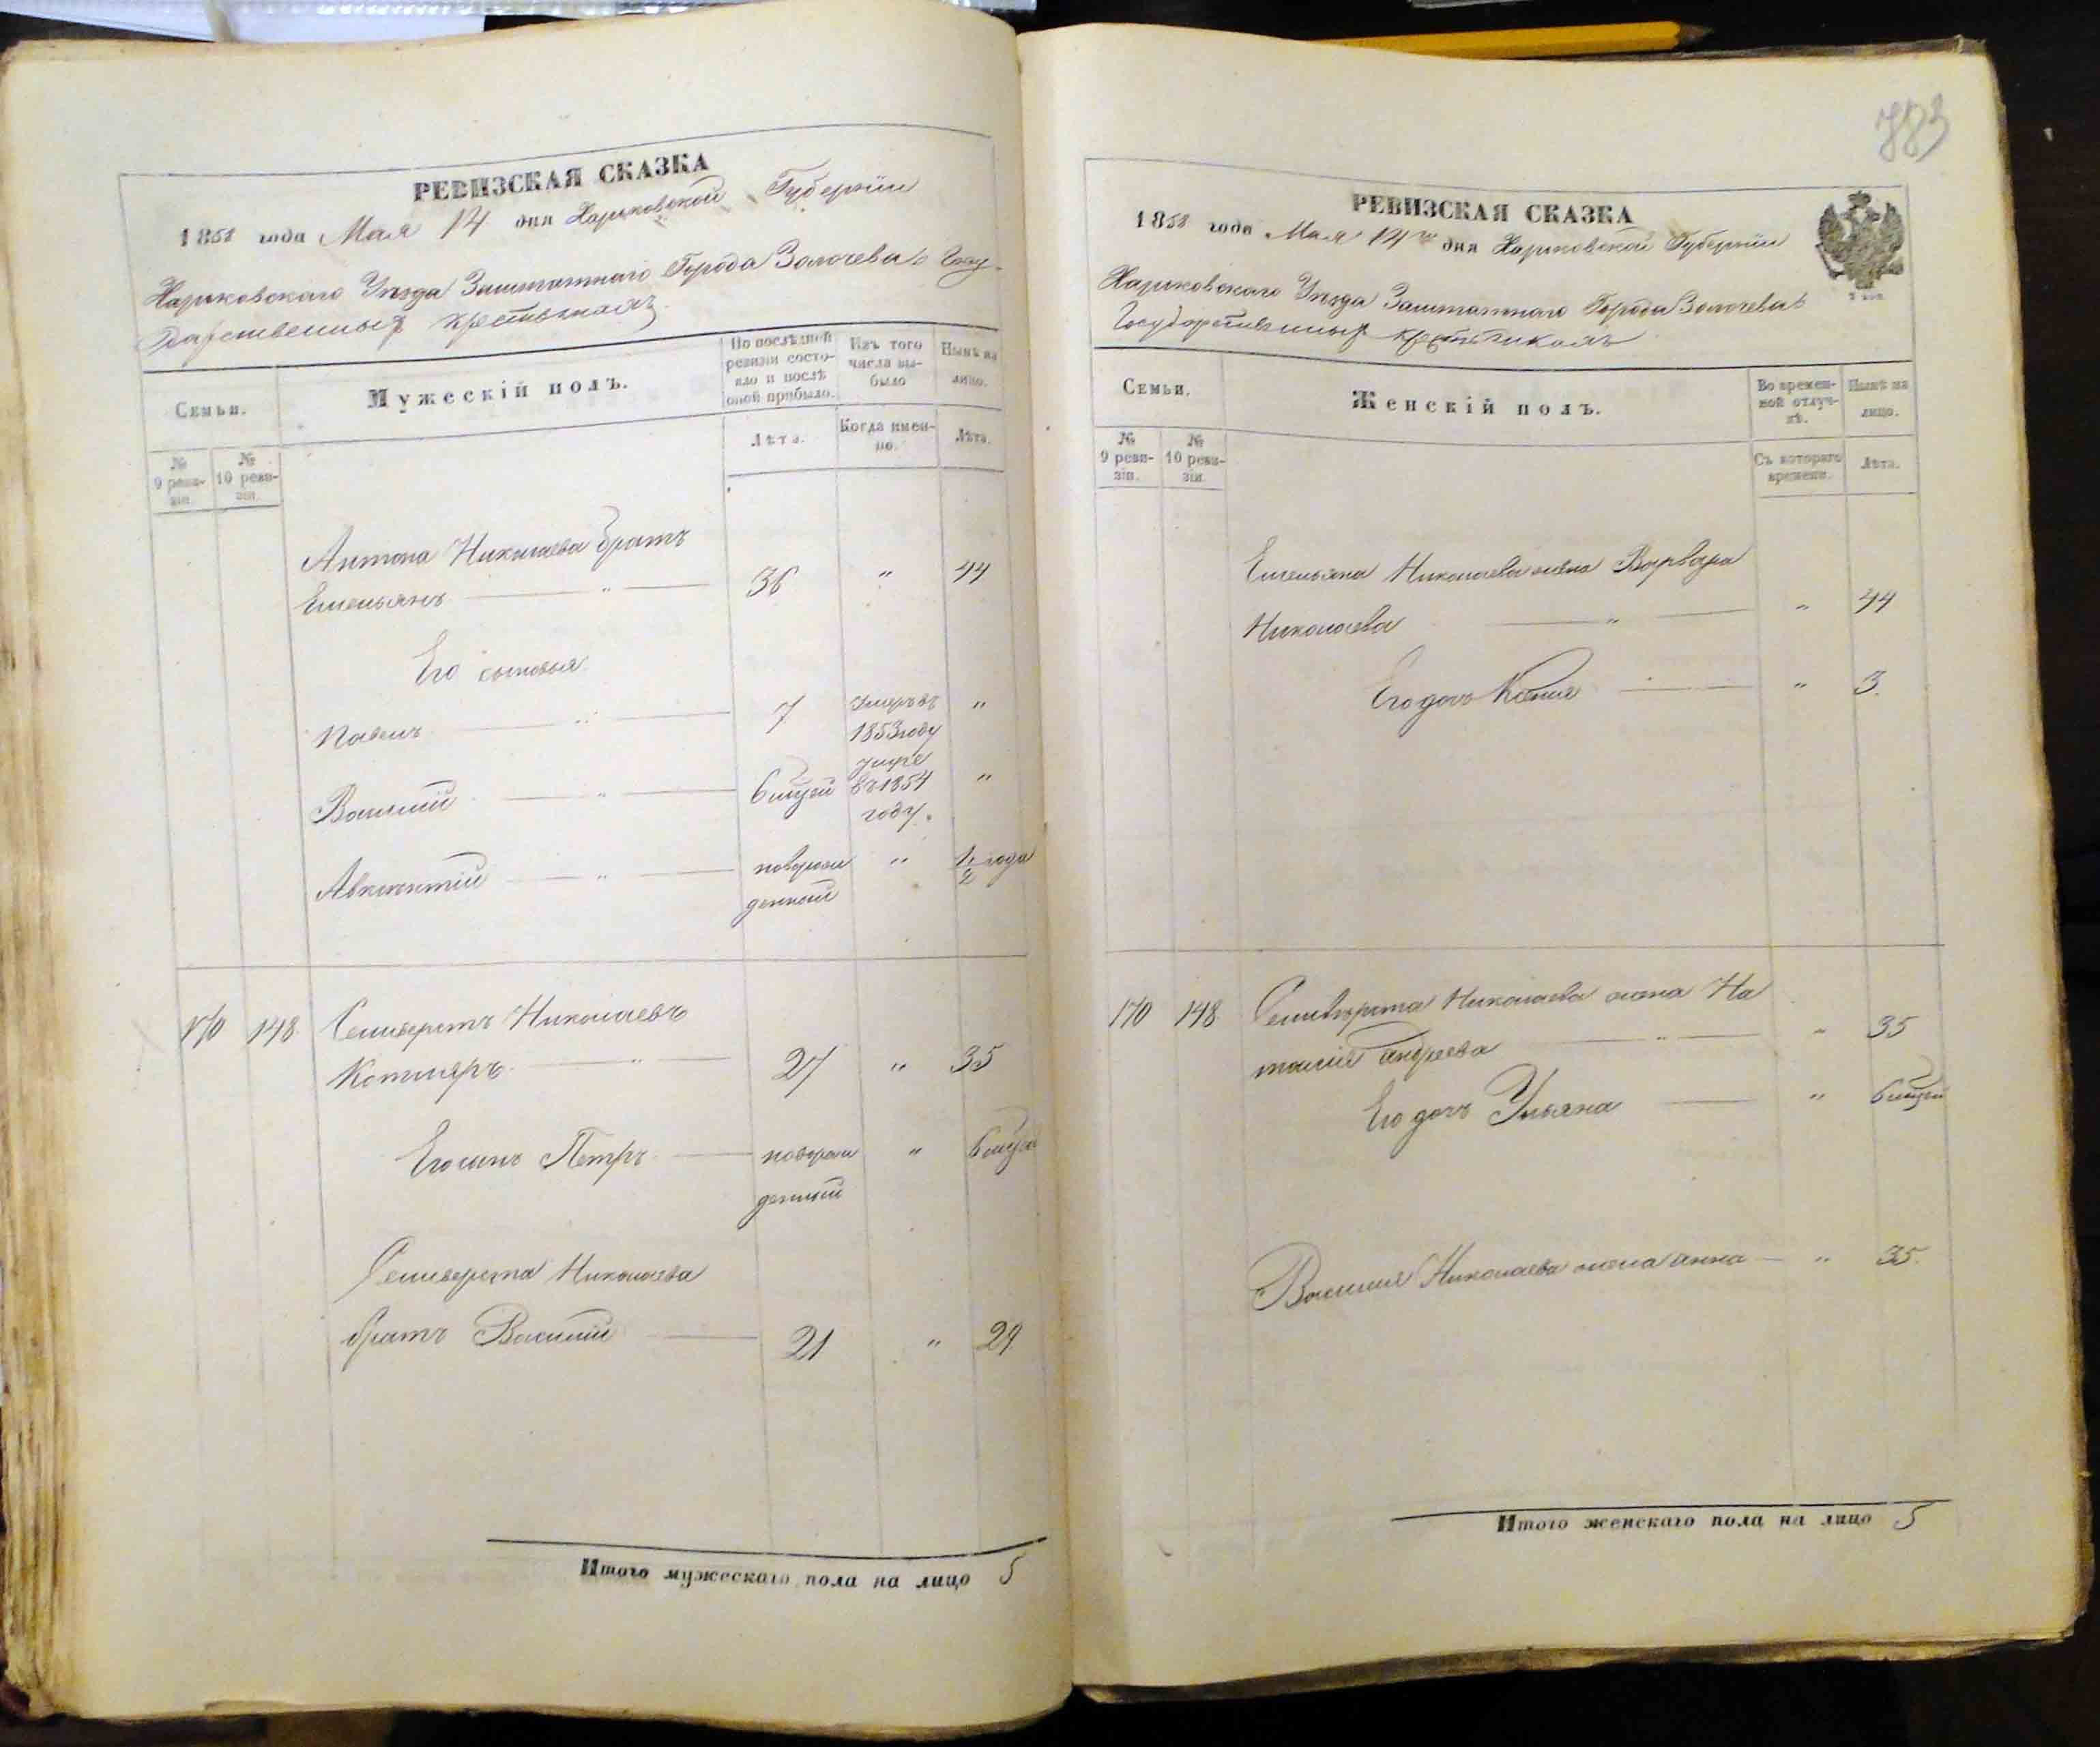 РЕВИЗСКАЯ СКАЗКА
1858 года Мая 14 дня Харьковской Губерніи
Харьковскаго Уезда Заштатнаго Города Золочева о Госу-
дарственныхъ крестьянахъ
Семьи.
Мужескій полъ.
По послѣдней ревизіи состо-
яло и послѣ оной прибыло.
Изъ того числа вы-
было
Нынѣ на лицо.
№ 9 реви-
зіи.
№ 10 реви-
зіи.
Лѣта.
Когда имен-
но.
Лѣта.
Антона Николаева братъ
Емельянъ — " — 36 " 44
Его сыновья
Павелъ — " — 7 умеръ въ 1853 году "
Василій — " — 6 мцей умре въ 1854 году. "
Авксентій — " — новорож
денный " 1/2 года
170 148 Селиверстъ Николаевъ
Котляръ — " — 27 " 35
Его сынъ Петръ — новорож
денный " 6 мцей
Селиверста Николаева
братъ Василій — 21 " 29
Итого мужескаго пола на лицо 5
783
РЕВИЗСКАЯ СКАЗКА
1858 года Мая 14го дня Харьковской Губерніи
Харьковскаго Уезда Заштатнаго Города Золочева о
Государственныхъ крестьянахъ
Семьи.
Женскій полъ.
Во времен-
ной отлуч-
кѣ.
Нынѣ на лицо.
№ 9 реви-
зіи.
№ 10 реви-
зіи.
Съ котораго времени.
Лѣта.
Емельяна Николаева жена Варвара
Николаева — " — " 44
Его дочь Ксенія — " — " 3
170 148 Селиверста Николаева жена На
талія Андреева — " — " 35
Его дочь Ульяна — " 6 мцей
Василія Николаева жена Анна — " 35
Итого женскаго пола на лицо 5